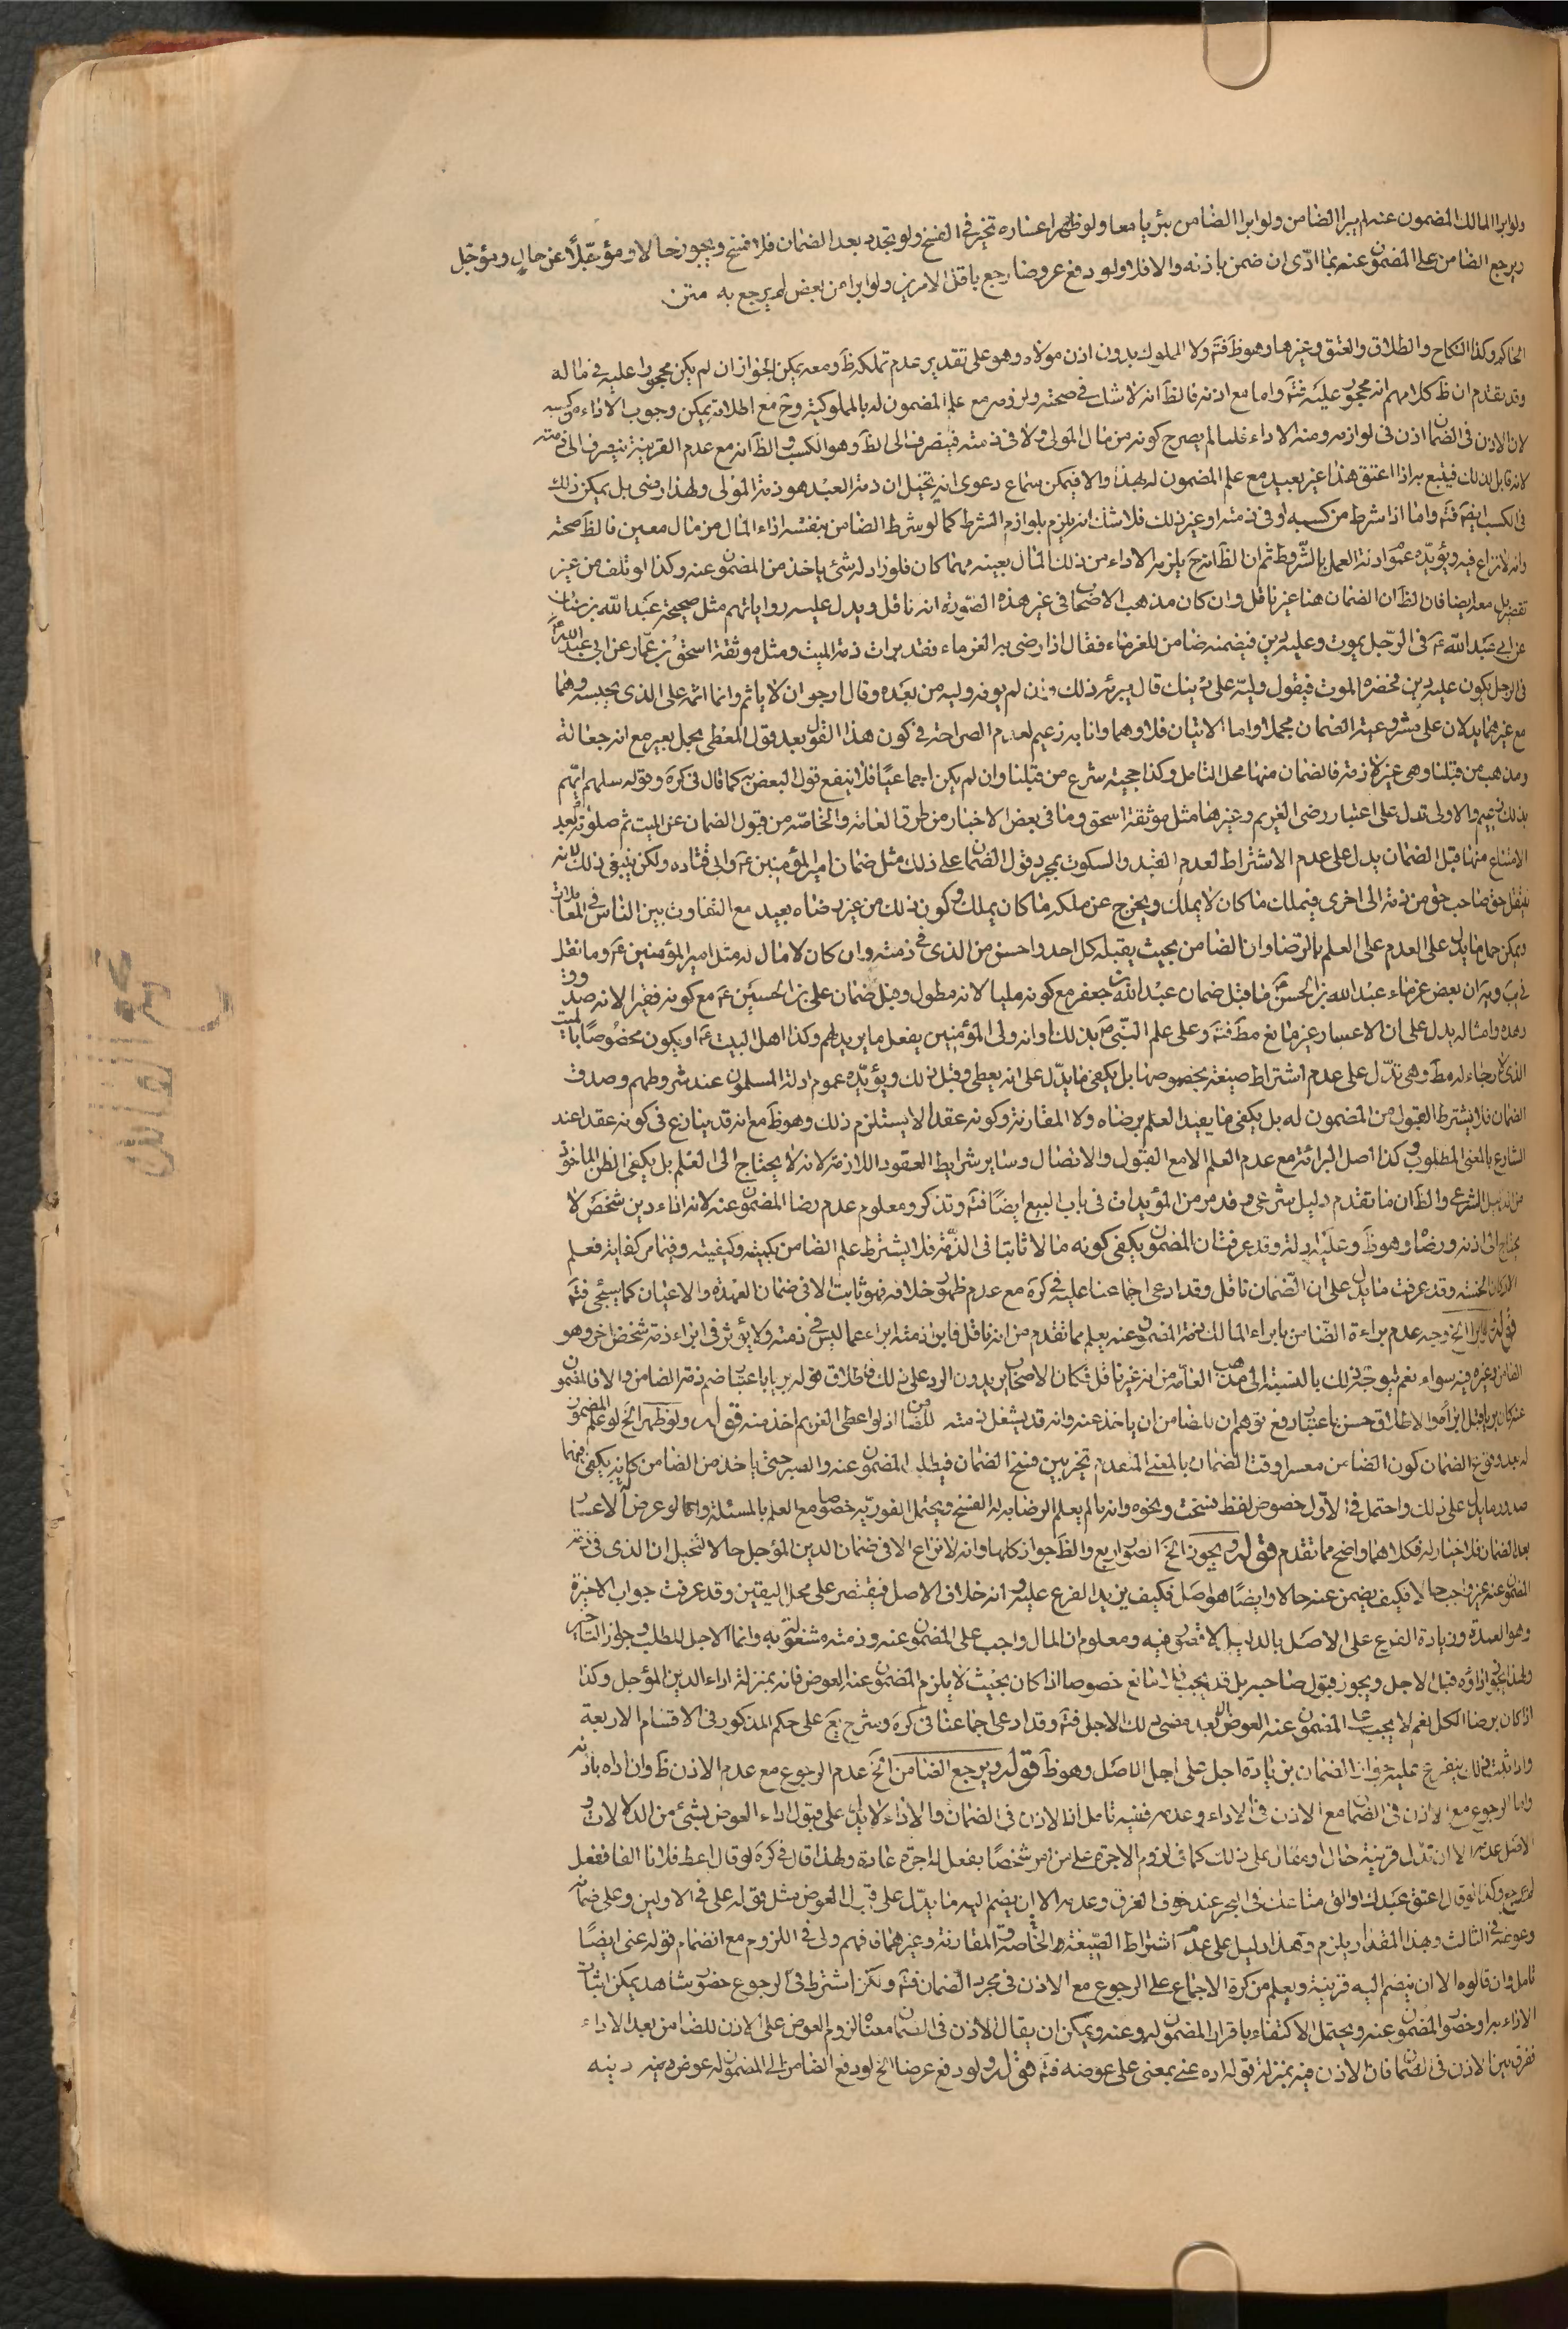 ولو ابرا المالك المضمون عنه لم يبرا الضامن ولو ابرا الضامن برئ يا معا ولو ظهر اعساره تخير في الفسخ ولو تجدد بعد الضمان فلا فسخ ويجوز حالا ومؤجلا عن حال ومؤجل
ويرجع الضامن على المضمون عنه بما ادى ان ضمن باذنه والا فلا ولو دفع عروضا رجع باقل الامرين ولو ابرا من بعض لم يرجع به متن
الحاكم وكذا النكاح والطلاق والعتق وغيرها وهو ظ فتم ولا المملوك بدون اذن مولاه وهو على تقدير عدم تملكه ظ ومعه يمكن الجواز ان لم يكن محجورا عليه في ماله
وقد تقدم ان ظ كلامهم انه محجور عليه فتم واما مع اذنه فالظ انه لا شك في صحته ولزومه مع علم المضمون له بالمملوكية وح مع اطلاقه يمكن وجوب الاداء من كسبه
لان الاذن في الضمان اذن في لوازمه ومنه الاداء فلما لم يصرح كونه من مال المولى ولا في ذمته فينصرف الى الظ وهو الكسب والظ انه مع عدم القرينة ينصرف الى ذمته
لانه قابل لذلك فيتبع به اذا اعتق هذا غير بعيد مع علم المضمون له بهذا والا فيمكن سماع دعوى انه تخيل ان ذمة العبد هو ذمة المولى ولهذا رضى بل يمكن ذلك
في الكسب ايضا فتم واما اذا شرط من كسبه او في ذمته او غير ذلك فلا شك انه يلزم بلوازم الشرط كما لو شرط الضامن بنفسه اداء المال من مال معين فالظ صحته
وانه لا نزاع فيه ويؤيده عموم ادلة العمل بالشروط ثم ان الظ انه ح يلزمه الاداء من ذلك المال بعينه مهما كان فلو زاد له شئ ياخذ من المضمون عنه وكذا لو تلف من غير
تفريط معه ايضا فان الظ ان الضمان هنا غير ناقل وان كان مذهب الاصحاب في غير هذه الصورة انه ناقل ويدل عليه رواياتهم مثل صحيحة عبد الله بن سنان
عن ابي عبد الله ع في الرجل يموت وعليه دين فيضمنه ضامن للغرماء فقال اذا رضى به الغرماء فقد برات ذمة الميت ومثل موثقة اسحق بن عمار عن ابي عبد الله ع
في الرجل يكون عليه دين فحضره الموت فيقول وليه على دينك قال يبرئه ذلك وان لم يوفه وليه من بعده وقال ارجو ان لا ياثم وانما اثمه على الذي يحبسه وهما
مع غيرهما يدلان على مشروعية الضمان مجملا واما الايتان فلا وهما وانا به زعيم لعدم الصراحة في كون هذا القول بعد قول المعطي بحمل بعير مع انه جعالة
ومذهب من قبلنا وهي غير لازمة فالضمان منها محل التامل وكذا حجية شرع من قبلنا وان لم يكن اجماعيا فلا ينفع قول البعض به كما قال في كره وقوله سلهم ايهم
بذلك زعيم والاولى تدل على اعتبار رضى الغريم وغيرها مثل موثقة اسحق وما في بعض الاخبار من طرق العامة والخاصة من قبول الضمان عن الميت ثم صلوته بعد
الامتناع منها قبل الضمان يدل على عدم الاشتراط لعدم القيد والسكوت بمجرد قول الضامن على ذلك مثل ضمان امير المؤمنين ع وابي قتاده ولكن ينبغي ذلك لانه
ينتقل حق صاحب حق من ذمة الى اخرى فيملك ما كان لا يملك ويخرج عن ملكه ما كان يملك وكون ذلك من غير رضاه بعيد مع التفاوت بين الناس في المعاملات
ويمكن حمل ما يدل على العدم على العلم بالرضا وان الضامن بحيث يقبله كل احد واحسن من الذي في ذمته وان كان لا مال له مثل امير المؤمنين ع وما نقل
في يب وغيره ان بعض غرماء عبد الله بن الحسن ما قبل ضمان عبد الله بن جعفر مع كونه مليا لانه مطول وقبل ضمان علي بن الحسين ع مع كونه فقيرا لانه صدوق
وهذه وامثاله يدل على ان الاعسار غير مانع مط فتم وعلى علم النبي ص بذلك وانه ولى المؤمنين يفعل ما يريد لهم وكذا اهل البيت ع او يكون مخصوصا بالميت
الذي لا رجاء له مط وهي تدل على عدم اشتراط صيغة بخصوصها بل يكفي ما يدل على انه يعطي وقبل ذلك ويؤيده عموم ادلة المسلمون عند شروطهم وصدق
الضمان فلا يشترط القبول من المضمون له بل يكفي ما يفيد العلم برضاه ولا المقارنة وكونه عقدا لا يستلزم ذلك وهو ظ مع انه قد ينازع في كونه عقدا عند
الشارع بالمعنى المطلوب وكذا اصل البرائة مع عدم العلم الا مع القبول والاتصال وساير شرايط العقود اللازمة لانه لا يحتاج الى العلم بل يكفي الظن الماخوذ
من الدليل الشرعي والظ ان ما تقدم دليل شرعي وقد مر من المؤيدات في باب البيع ايضا فتم وتذكر ومعلوم عدم رضا المضمون عنه لانه اداء دين شخص لا
يحتاج الى اذنه ورضاه وهو ظ وعليه ادلة وقد عرفت ان المضمون يكفي كونه مالا ثابتا في الذمة فلا يشترط علم الضامن بكميته وكيفيته وفيما مر كفاية فعلم
الاركان الخمسة وقد عرفت ما يدل على ان الضمان ناقل وقد ادعى اجماعنا عليه في كره مع عدم ظهور خلافه فهو ثابت الا في ضمان العهدة والاعيان كما سيجئ فتم
قوله ولو ابرا الخ وجه عدم براءة الضامن بابراء المالك ذمة المضمون عنه يعلم مما تقدم من انه ناقل فابراء ذمته ابراء عما ليس في ذمته ولا يؤثر في ابراء ذمة شخص اخر وهو
الضامن وغيره فيه سواء نعم يتوجه ذلك بالنسبة الى مذهب العامة من انه غير ناقل فكان الاصحاب يريدون الرد على ذلك فاطلاق قوله بريا باعتبار ضم ذمة الضامن والا فالمضمون
عنه كان بريا قبل ابراء هو الاطلاق حسن باعتبار رفع توهم ان للضامن ان ياخذ عنه وانه قد يشغل ذمته للضامن اذ لو اعطى الغريم اخذ منه قوله ولو ظهر الخ لو علم المضمون
له بعد وقوع الضمان كون الضامن معسرا وقت الضمان بالمعنى المتقدم تخير بين فسخ الضمان فيطلب المضمون عنه والصبر حتى ياخذ من الضامن كانه يكفي فيهما
صدور ما يدل على ذلك واحتمل في الاول خصوص لفظ فسخت ونحوه وانه ما لم يعلم الرضا به له الفسخ ويحتمل الفورية خصوصا مع العلم بالمسئلة واما لو عرض له الاعسار
بعد الضمان فلا خيار له فكلاهما واضح مما تقدم قوله ويجوز الخ الصور اربع والظ جواز كلها وانه لا نزاع الا في ضمان الدين المؤجل حالا لتخيل ان الذي في ذمة
المضمون عنه غير واجب حالا فكيف يضمن عنه حالا وايضا هو اصل فكيف يزيد الفرع عليه وانه خلاف الاصل فيقتصر على محل اليقين وقد عرفت جواب الاخيرة
وهو العمدة وزيادة الفرع على الاصل بالدليل لا قصور فيه ومعلوم ان المال واجب على المضمون عنه وذمته مشغولة به وانما الاجل للمطلب وجواز التاخير
ولهذا يجوز اداؤه قبل الاجل ويجوز قبول صاحبه بل قد يجب فلا مانع خصوصا اذا كان بحيث لا يلزم المضمون عنه العوض فانه بمنزلة اداء الدين المؤجل وكذا
اذا كان برضا الكل نعم لا يجب على المضمون عنه العوض الا بعد مضى ذلك الاجل فتم وقد ادعى اجماعنا في كره وشرح يع على حكم المذكور في الاقسام الاربعة
واذا ثبت ذلك يتفرع عليه جواز الضمان بزيادة اجل على اجل الاصل وهو ظ قوله ويرجع الضامن الخ عدم الرجوع مع عدم الاذن ظ وان اداه باذنه
واما الرجوع مع الاذن في الضمان مع الاذن في الاداء وعدمه ففيه تامل اذ الاذن في الضمان والاداء لا يدل على قبول اداء العوض بشئ من الدلالات
والاصل عدمه الا ان تدل قرينة حال او مقال على ذلك كما في لزوم الاجرة على من امر شخصا بفعل له اجرة عادة ولهذا قال في كره لو قال اعط فلانا الفا ففعل
لم يرجع وكذا لو قال اعتق عبدك او الق متاعك في البحر عند خوف الغرق وعدمه الا ان يضم اليه ما يدل على قبول العوض مثل قوله على في الاولين وعلى ضمانه
وعوضه في الثالث وهذا المقدار يلزم وهذا دليل على عدم اشتراط الصيغة الخاصة والمقارنة وغيرهما فافهم ولى في اللزوم مع انضمام قوله عني ايضا
تامل وان قالوه الا ان ينضم اليه قرينة ويعلم من كره الاجماع على الرجوع مع الاذن في مجرد الضمان فتم ولكن اشترط في الرجوع حضور شاهد يمكن اثبات
الاداء به او حضور المضمون عنه ويحتمل الاكتفاء باقرار المضمون له وعنه ويمكن ان يقال الاذن في الضمان معناه لزوم العوض على الاذن للضامن بعد الاداء
ففرق بين الاذن في الضمان فان الاذن فيه بمنزلة قوله اده عني بمعنى على عوضه فتم قوله ولو دفع عرضا الخ لو دفع الضامن الى المضمون له عوض دينه